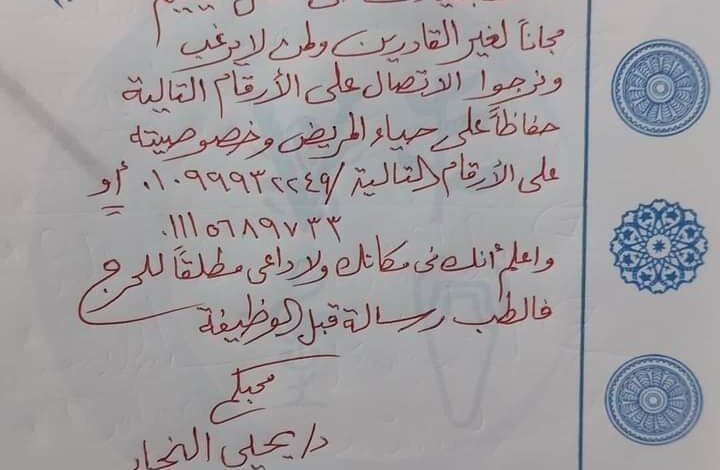 مجاناً لغير القادرين ولمن لا يرغب
ونرجوا الاتصال على الأرقام التالية
حفاظاً على حياء المريض وخصوصيته
على الأرقام التالية / ٠١٠٩٩٩٣٢٢٤٩ أو
٠١١١٥٦٨٩٧٣٣
واعلم أنك فى مكانك ولا داعى مطلقاً للحرج
فالطب رسالة قبل الوظيفة
محبكم
د/ يحيى النجار